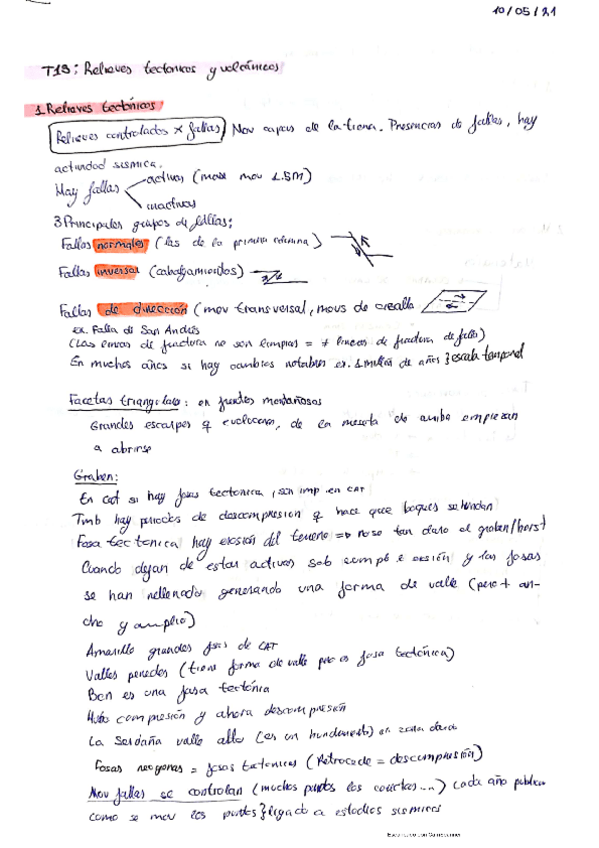 10/05/21
T13: Relieves tectonicos y volcánicos
1. Relieves tectónicos
Relieves controlados x fallas Mov capas de la tierra. Presencias de fallas, hay
actividad sísmica.
Hay fallas activas (mov 1.5M)
inactivas
3 Principales grupos de fallas:
Fallas normales (las de la primera columna)
Fallas inversas (cabalgamientos)
Fallas de dirección (mov transversal, movs de cizalla
ex. Falla de San Andrés
(Las lineas de fractura no son limpias = ≠ lineas de fractura de fallas)
En muchos años si hay cambios notables ex. 1 millón de años } escala temporal
Facetas triangulares: en frentes montañosos
Grandes escarpes q evolucionan, de la meseta de arriba empiezan
a abrirse
Graben:
En cat si hay fosas tectonica, son imp en CAT
Tmb hay periodos de descompresion q hace que boques se hundan
Fosa tectonica hay erosión del terreno => no se tan claro el graben/horst
Cuando dejan de estar activos sob empz e erosión y las fosas
se han rellenado generando una forma de valle (pero + an-
cho y amplio)
Amarillo grandes fosas de CAT
Valles penedes (tiene forma de valle pero es fosa tectónica)
Bcn es una fosa tectónica
Hubo compresión y ahora descompresión
La Serdaña valle alto (es un hundimiento) en zona
Fosas neogenas = fosas tectonicas (Retrocede = descompresión)
Mov fallas se controlan (muchos puntos los ....) cada año publican
como se mov los puntos } ligado a estudios sismicos